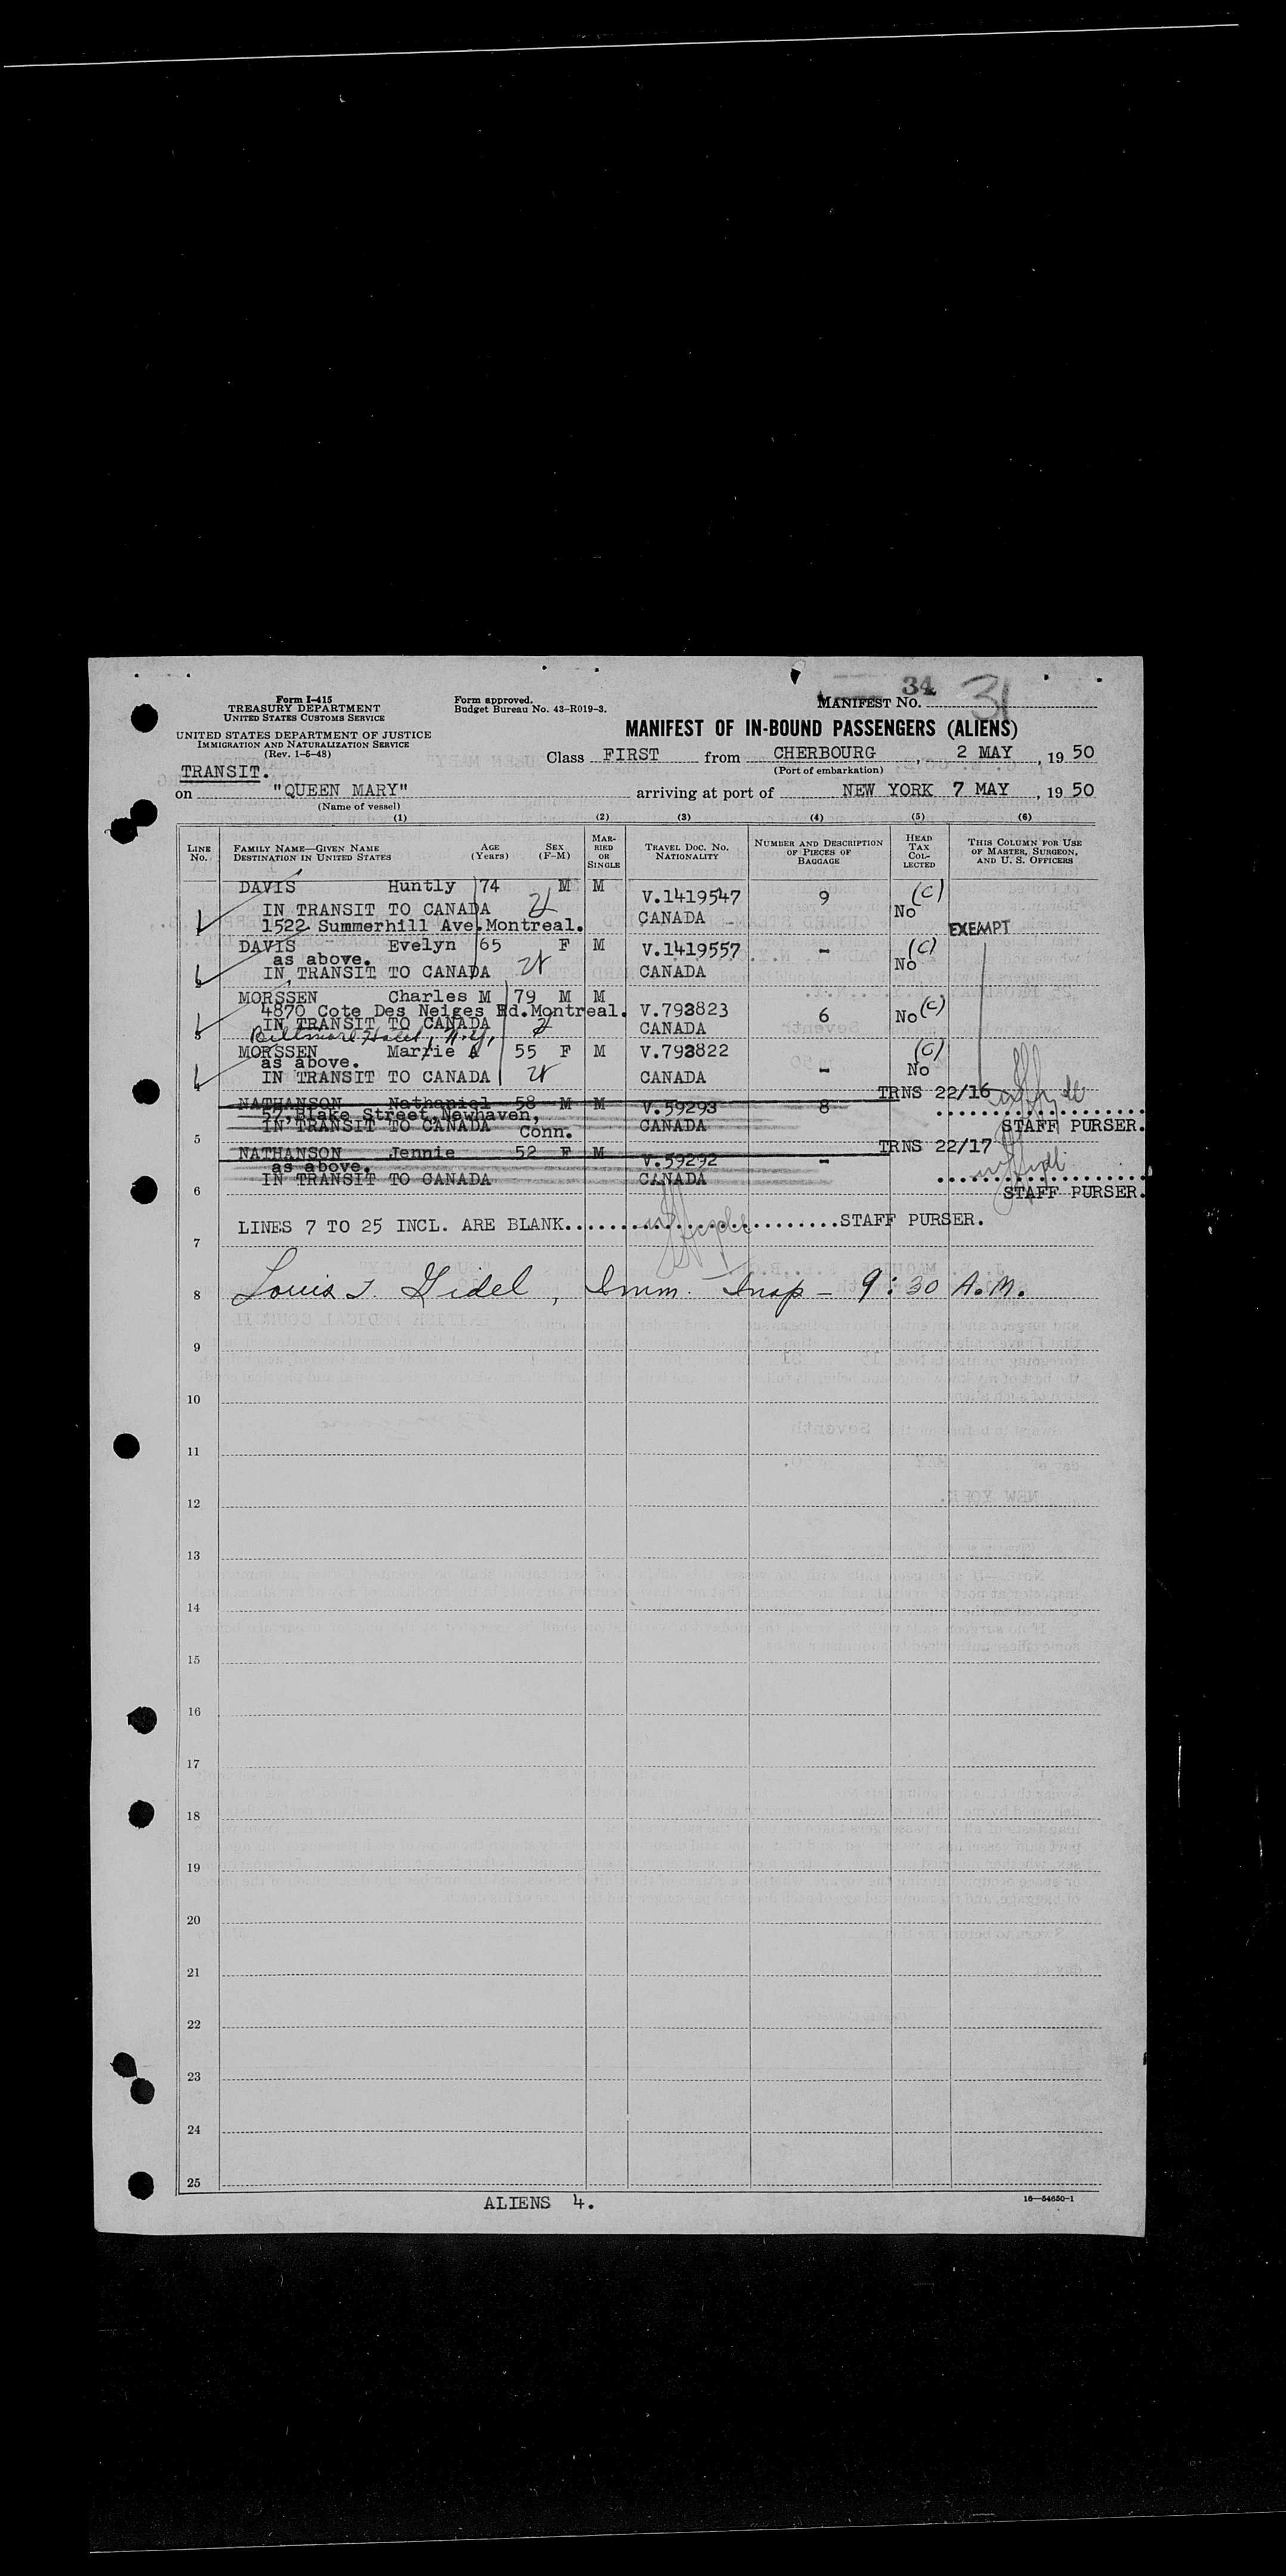 Form I-415
TREASURY DEPARTMENT
UNITED STATES CUSTOMS SERVICE
UNITED STATES DEPARTMENT OF JUSTICE
IMMIGRATION AND NATURALIZATION SERVICE
(Rev. 1-6-48)
Form approved.
Budget Bureau No. 43-R019-3.
34
MANIFEST NO. 31
MANIFEST OF IN-BOUND PASSENGERS (ALIENS)
Class FIRST from CHERBOURG, 2 MAY, 1950
(Port of embarkation)
TRANSIT.
on "QUEEN MARY" arriving at port of NEW YORK 7 MAY, 1950
(Name of vessel)
(1) (2) (3) (4) (5) (6)
LINE NO. FAMILY NAME—GIVEN NAME DESTINATION IN UNITED STATES AGE (Years) SEX (F-M) MARRIED OR SINGLE TRAVEL DOC. NO. NATIONALITY NUMBER AND DESCRIPTION OF PIECES OF BAGGAGE HEAD TAX COLLECTED THIS COLUMN FOR USE OF MASTER, SURGEON, AND U. S. OFFICERS
DAVIS Huntly 74 M M V.1419547 9 (C)
IN TRANSIT TO CANADA CANADA No
1522 Summerhill Ave.Montreal. EXEMPT
DAVIS Evelyn 65 F M V.1419557 - (C)
as above. No
IN TRANSIT TO CANADA CANADA
MORSSEN Charles M 79 M M
4870 Cote Des Neiges Rd.Montreal. V.793823 6 No (C)
IN TRANSIT TO CANADA CANADA
3 Biltmore Hotel, N.Y.
MORSSEN Marrie A 55 F M V.793822 (C)
as above. - No
4 IN TRANSIT TO CANADA CANADA
NATHANSON Nathaniel 58 M M V.59293 8 TRNS 22/16
57, Blake Street, Newhaven,
IN TRANSIT TO CANADA Conn. CANADA STAFF PURSER.
5
NATHANSON Jennie 52 F M V.59292 - TRNS 22/17
as above.
IN TRANSIT TO CANADA CANADA
6 STAFF PURSER.
LINES 7 TO 25 INCL. ARE BLANK..........................STAFF PURSER.
7
8 Louis J. Gidel, Imm. Insp - 9:30 A.M.
9
10
11
12
13
14
15
16
17
18
19
20
21
22
23
24
25
ALIENS 4.
16—54650-1